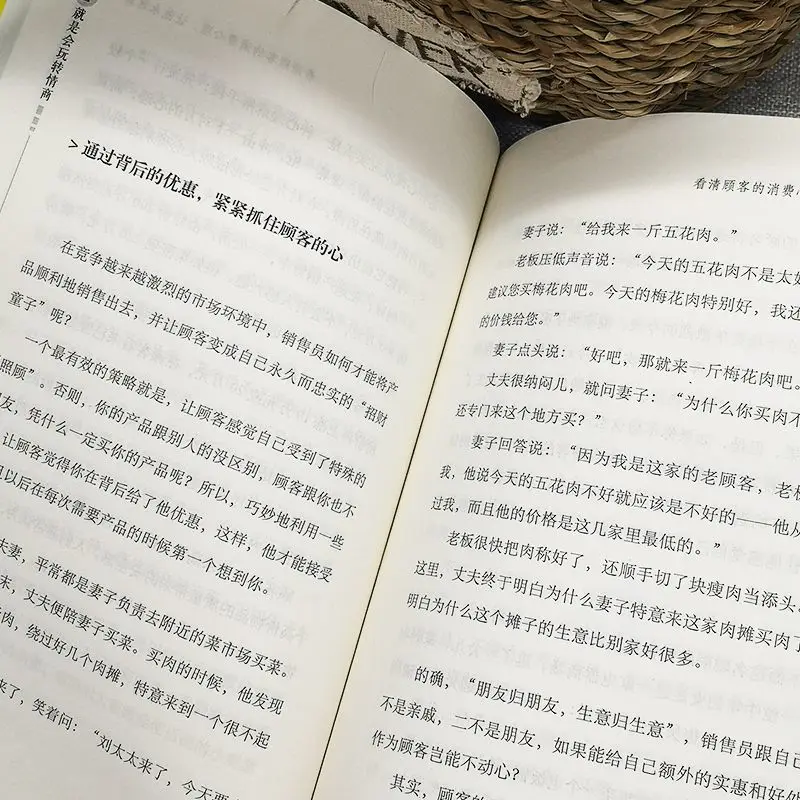 就是会玩转情商
>通过背后的优惠，紧紧抓住顾客的心
在竞争越来越激烈的市场环境中，销售员如何才能将产
品顺利地销售出去，并让顾客变成自己永久而忠实的“招财
童子”呢？
一个最有效的策略就是，让顾客感觉自己受到了特殊的
照顾”。否则，你的产品跟别人的没区别，顾客跟你也不
友，凭什么一定买你的产品呢？所以，巧妙地利用一些
让顾客觉得你在背后给了他优惠，这样，他才能接受
以后在每次需要产品的时候第一个想到你。
夫妻，平常都是妻子负责去附近的菜市场买菜。
末，丈夫便陪妻子买菜。买肉的时候，他发现
肉，绕过好几个肉摊，特意来到一个很不起
来了，笑着问：“刘太太来了，今天要
看清顾客的消费
妻子说：“给我来一斤五花肉。”
老板压低声音说：“今天的五花肉不是太
建议您买梅花肉吧。今天的梅花肉特别好，我还
的价钱给您。”
妻子点头说：“好吧，那就来一斤梅花肉吧。
丈夫很纳闷儿，就问妻子：“为什么你买肉
还专门来这个地方买？”
妻子回答说：“因为我是这家的老顾客，老板
我，他说今天的五花肉不好就应该是不好的——他从
过我，而且他的价格是这几家里最低的。”
老板很快把肉称好了，还顺手切了块瘦肉当添头
这里，丈夫终于明白为什么妻子特意来这家肉摊买肉了
明白为什么这个摊子的生意比别家好很多。
的确，“朋友归朋友，生意归生意”，销售员跟自己
不是亲戚，二不是朋友，如果能给自己额外的实惠和好处
作为顾客岂能不动心？
其实，顾客的